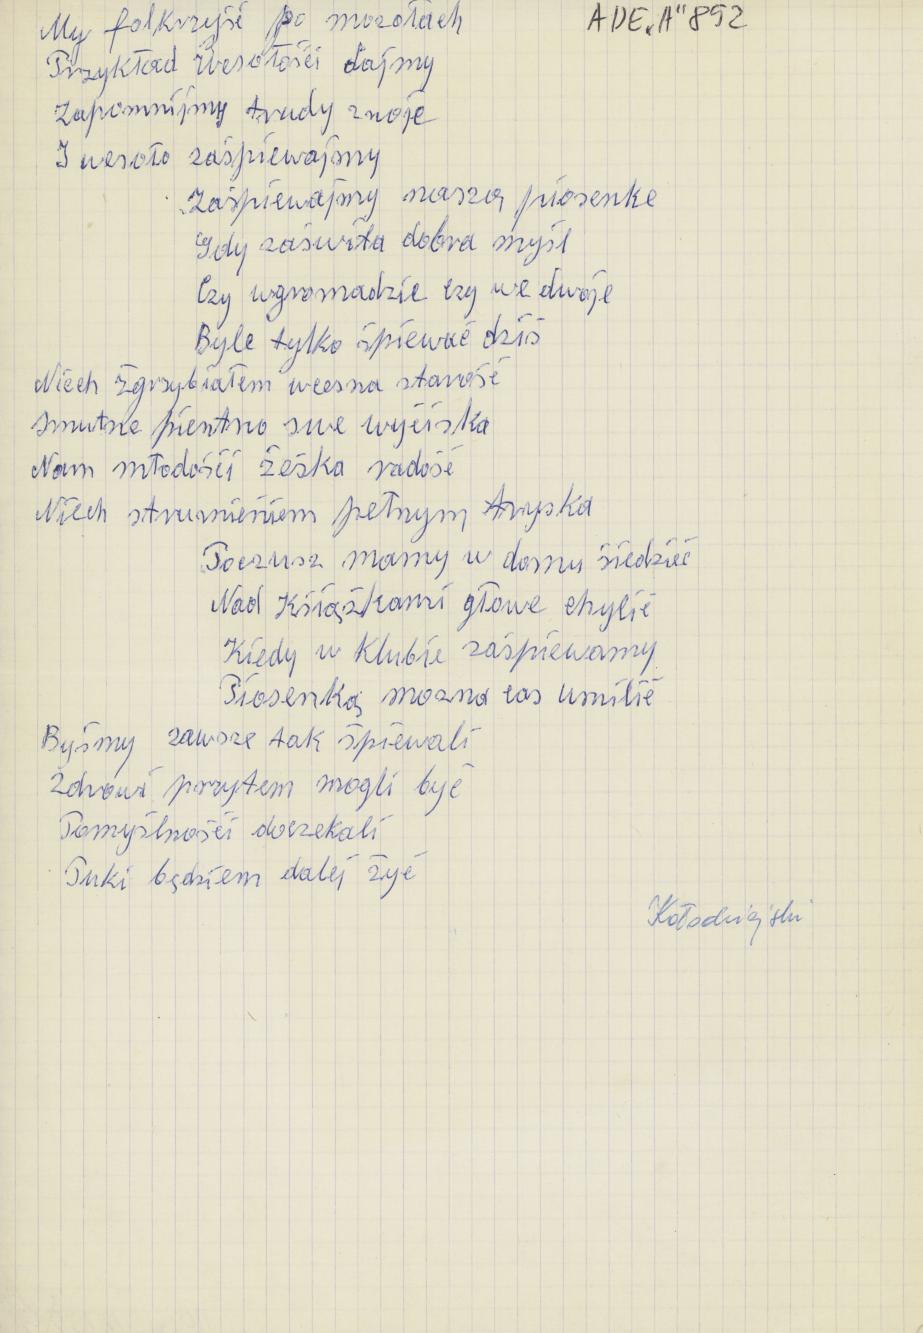 My folkrzyśi po mozołach
ADE„A" 892
Przykład wesołośći dajmy
Zapomnijmy trudy znoje
I wesoło zaśpiewajmy
Zaśpiewajmy naszą piosenke
Gdy zaświta dobra myśl
Czy wgromadzie czy we dwoje
Byle tylko śpiewać dziś
Niech zgrzybiałem wczesna starość
smutne pientno swe wyćiska
Nam młodośći żeśka radość
Niech strumieniem pełnym tryska
Poczusz mamy w domu śiedzieć
Nad Kśiążkami głowe chylić
Kiedy w klubie zaśpiewamy
Piosenką mozna czas umilić
Byśmy zawsze tak śpiewali
Zdrowi przytem mogli być
Pomyślnośći doczekali
Puki będziem dalej żyć